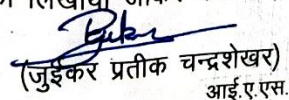 (जुईकर प्रतीक चन्द्रशेखर)
आई.ए.एस.